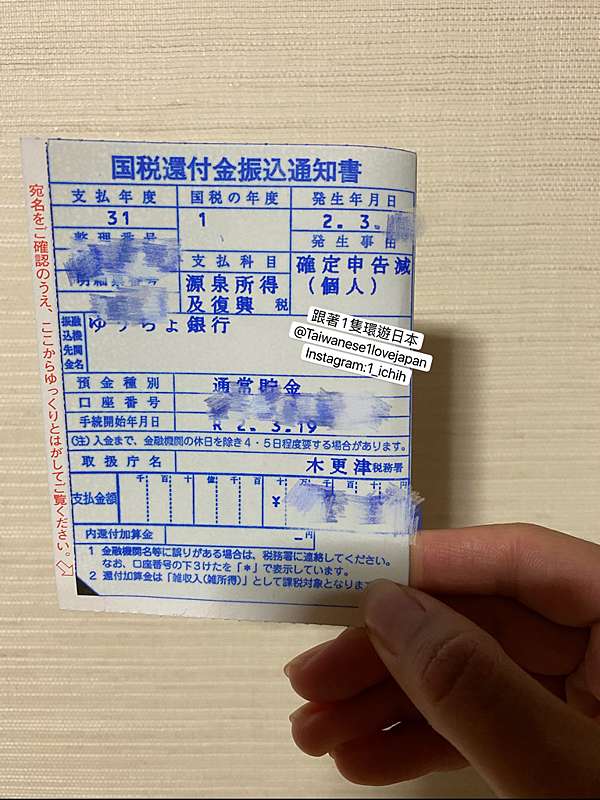 宛名をご確認のうえ、ここからゆっくりとはがしてご覧ください。
国税還付金振込通知書
支払年度
国税の年度
発生年月日
31
1
2. 3.
整理番号
発生事由
支払科目
確定申告減
(個人)
源泉所得
及復興 税
振込先金融機関名
ゆうちょ銀行
跟著1隻環遊日本
@Taiwanese1lovejapan
Instagram:1_ichih
預金種別
通常貯金
口座番号
手続開始年月日
R 2. 3.19
(注)入金まで、金融機関の休日を除き4・5日程度要する場合があります。
取扱庁名
木更津税務署
支払金額
千 百 十 億 千 百 十 万 千 百 十 円
¥
内還付加算金
- 円
1 金融機関名等に誤りがある場合は、税務署に連絡してください。
なお、口座番号の下3けたを「*」で表示しています。
2 還付加算金は「雑収入(雑所得)」として課税対象となります